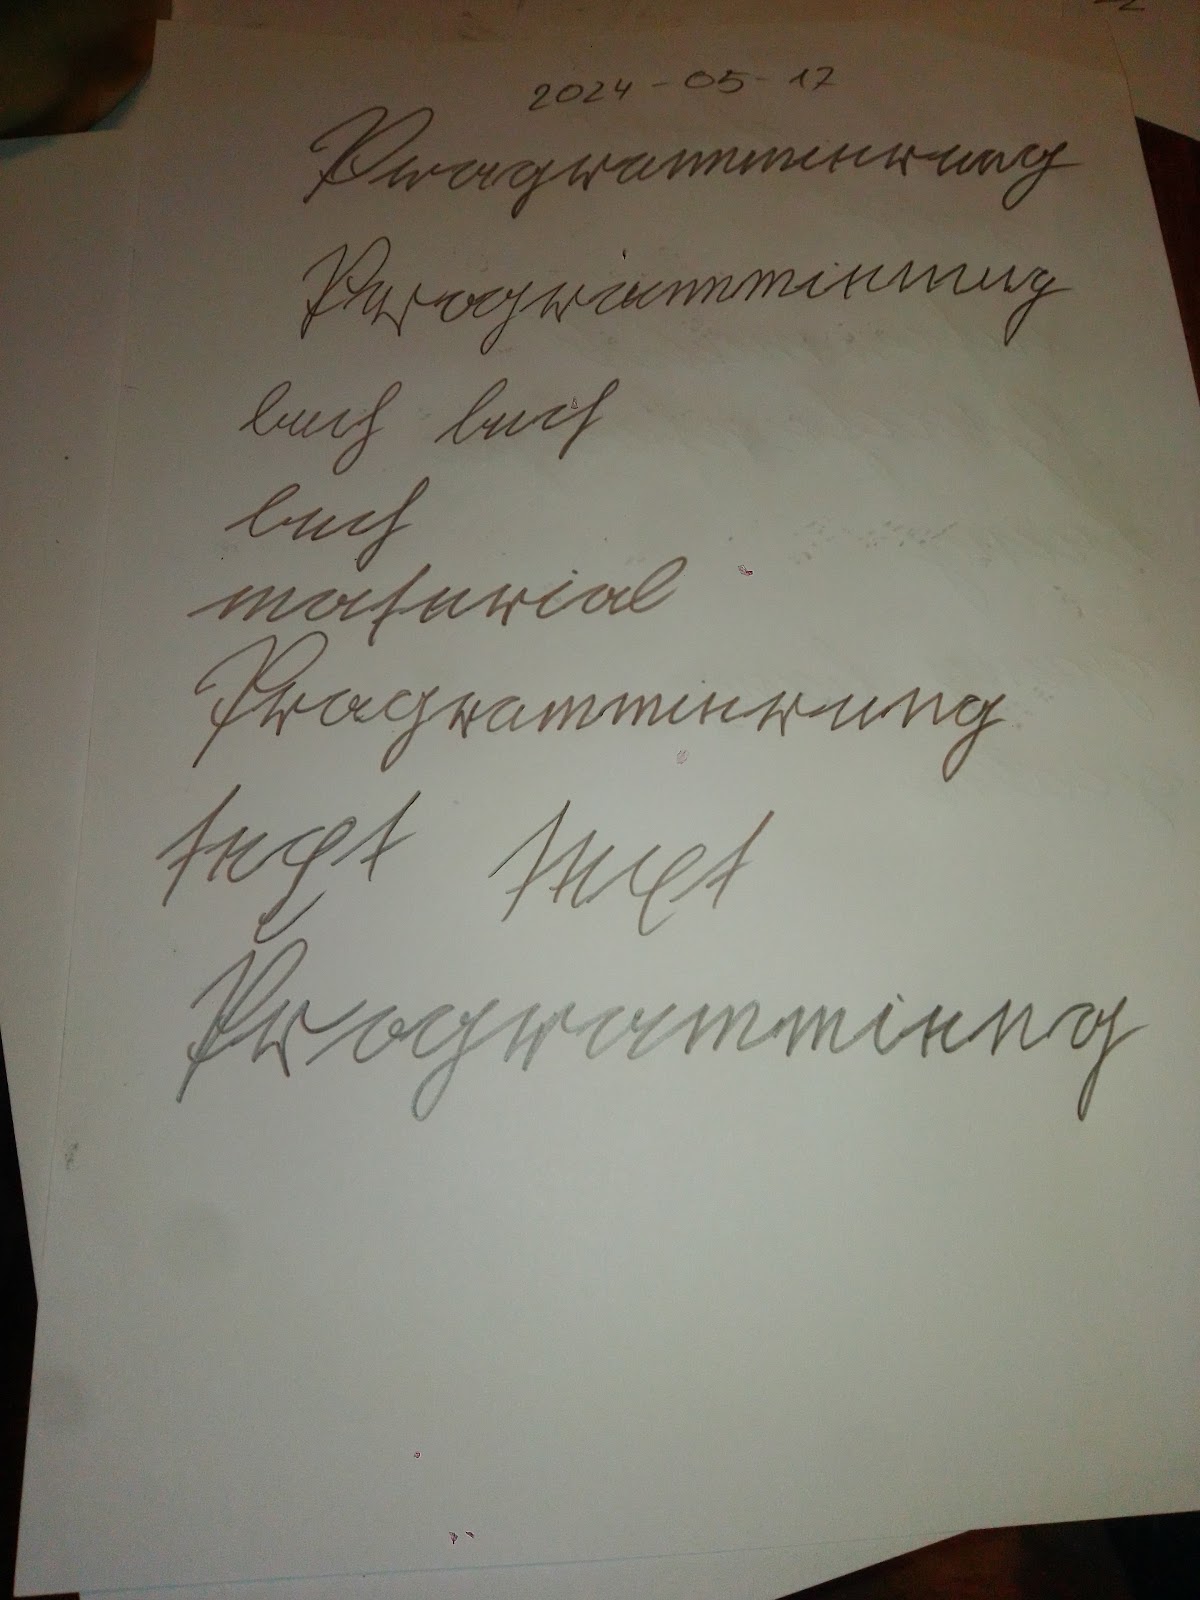 2024-05-17
Programmierung
Programmierung
buch buch
buch
material
Programmierung
text text
Programmierng